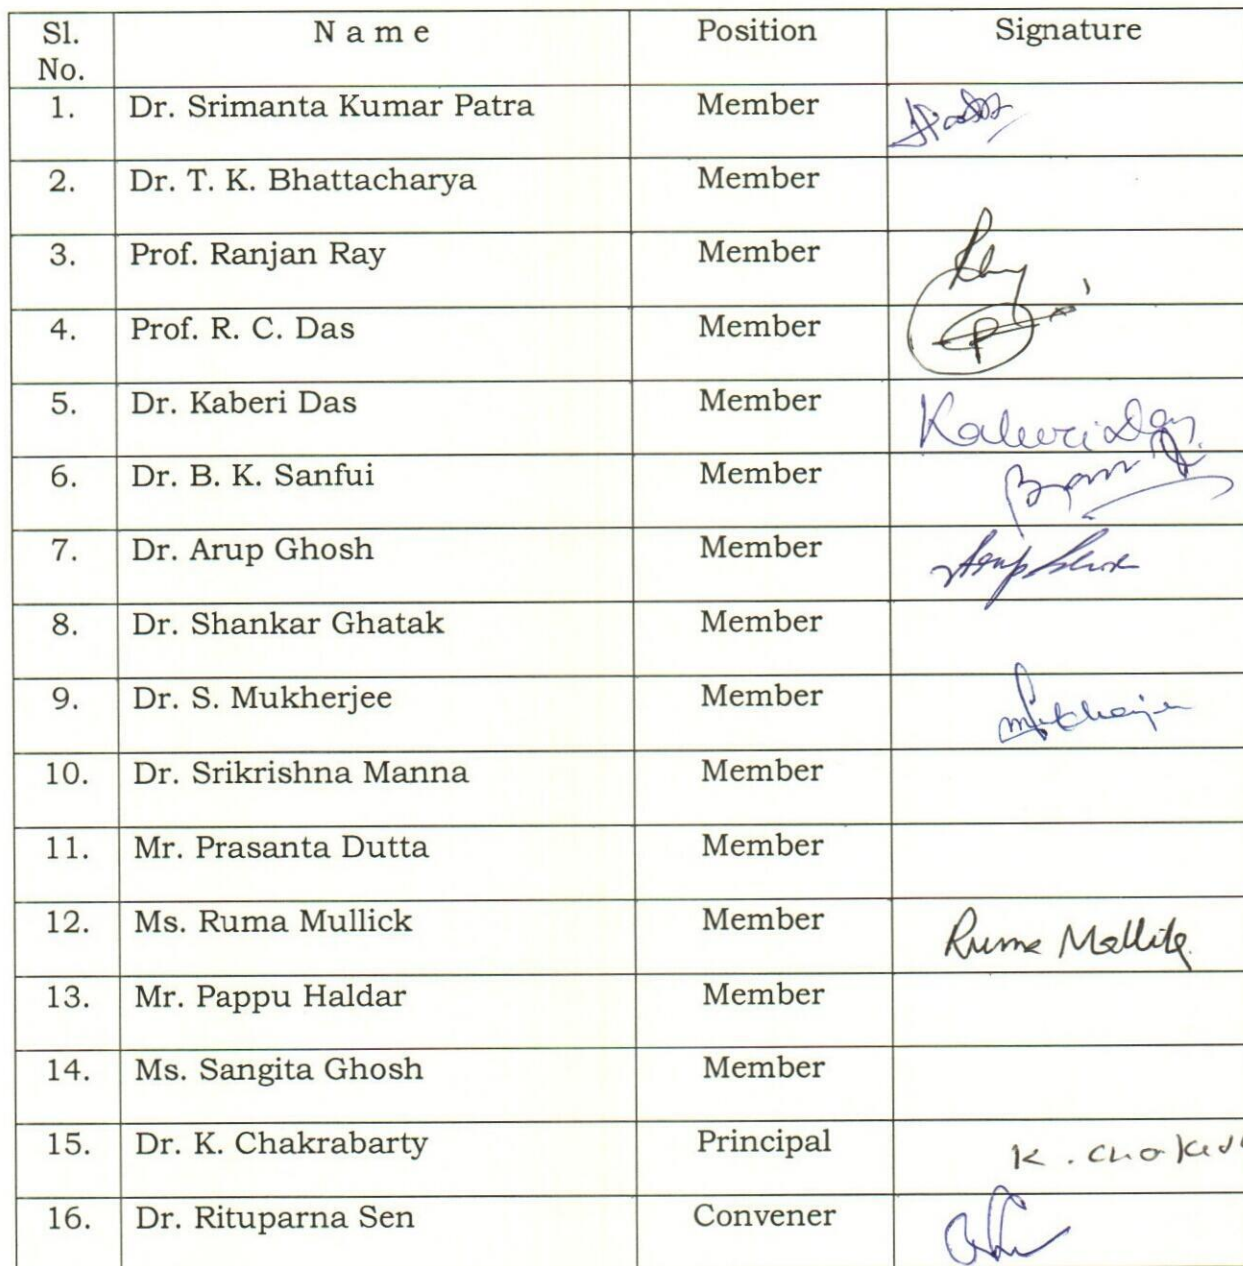 Sl. No. N a m e Position Signature
1. Dr. Srimanta Kumar Patra Member
2. Dr. T. K. Bhattacharya Member
3. Prof. Ranjan Ray Member
4. Prof. R. C. Das Member
5. Dr. Kaberi Das Member Kaberi Das
6. Dr. B. K. Sanfui Member
7. Dr. Arup Ghosh Member Arup Ghosh
8. Dr. Shankar Ghatak Member
9. Dr. S. Mukherjee Member
10. Dr. Srikrishna Manna Member
11. Mr. Prasanta Dutta Member
12. Ms. Ruma Mullick Member Ruma Mallik
13. Mr. Pappu Haldar Member
14. Ms. Sangita Ghosh Member
15. Dr. K. Chakrabarty Principal K.
16. Dr. Rituparna Sen Convener